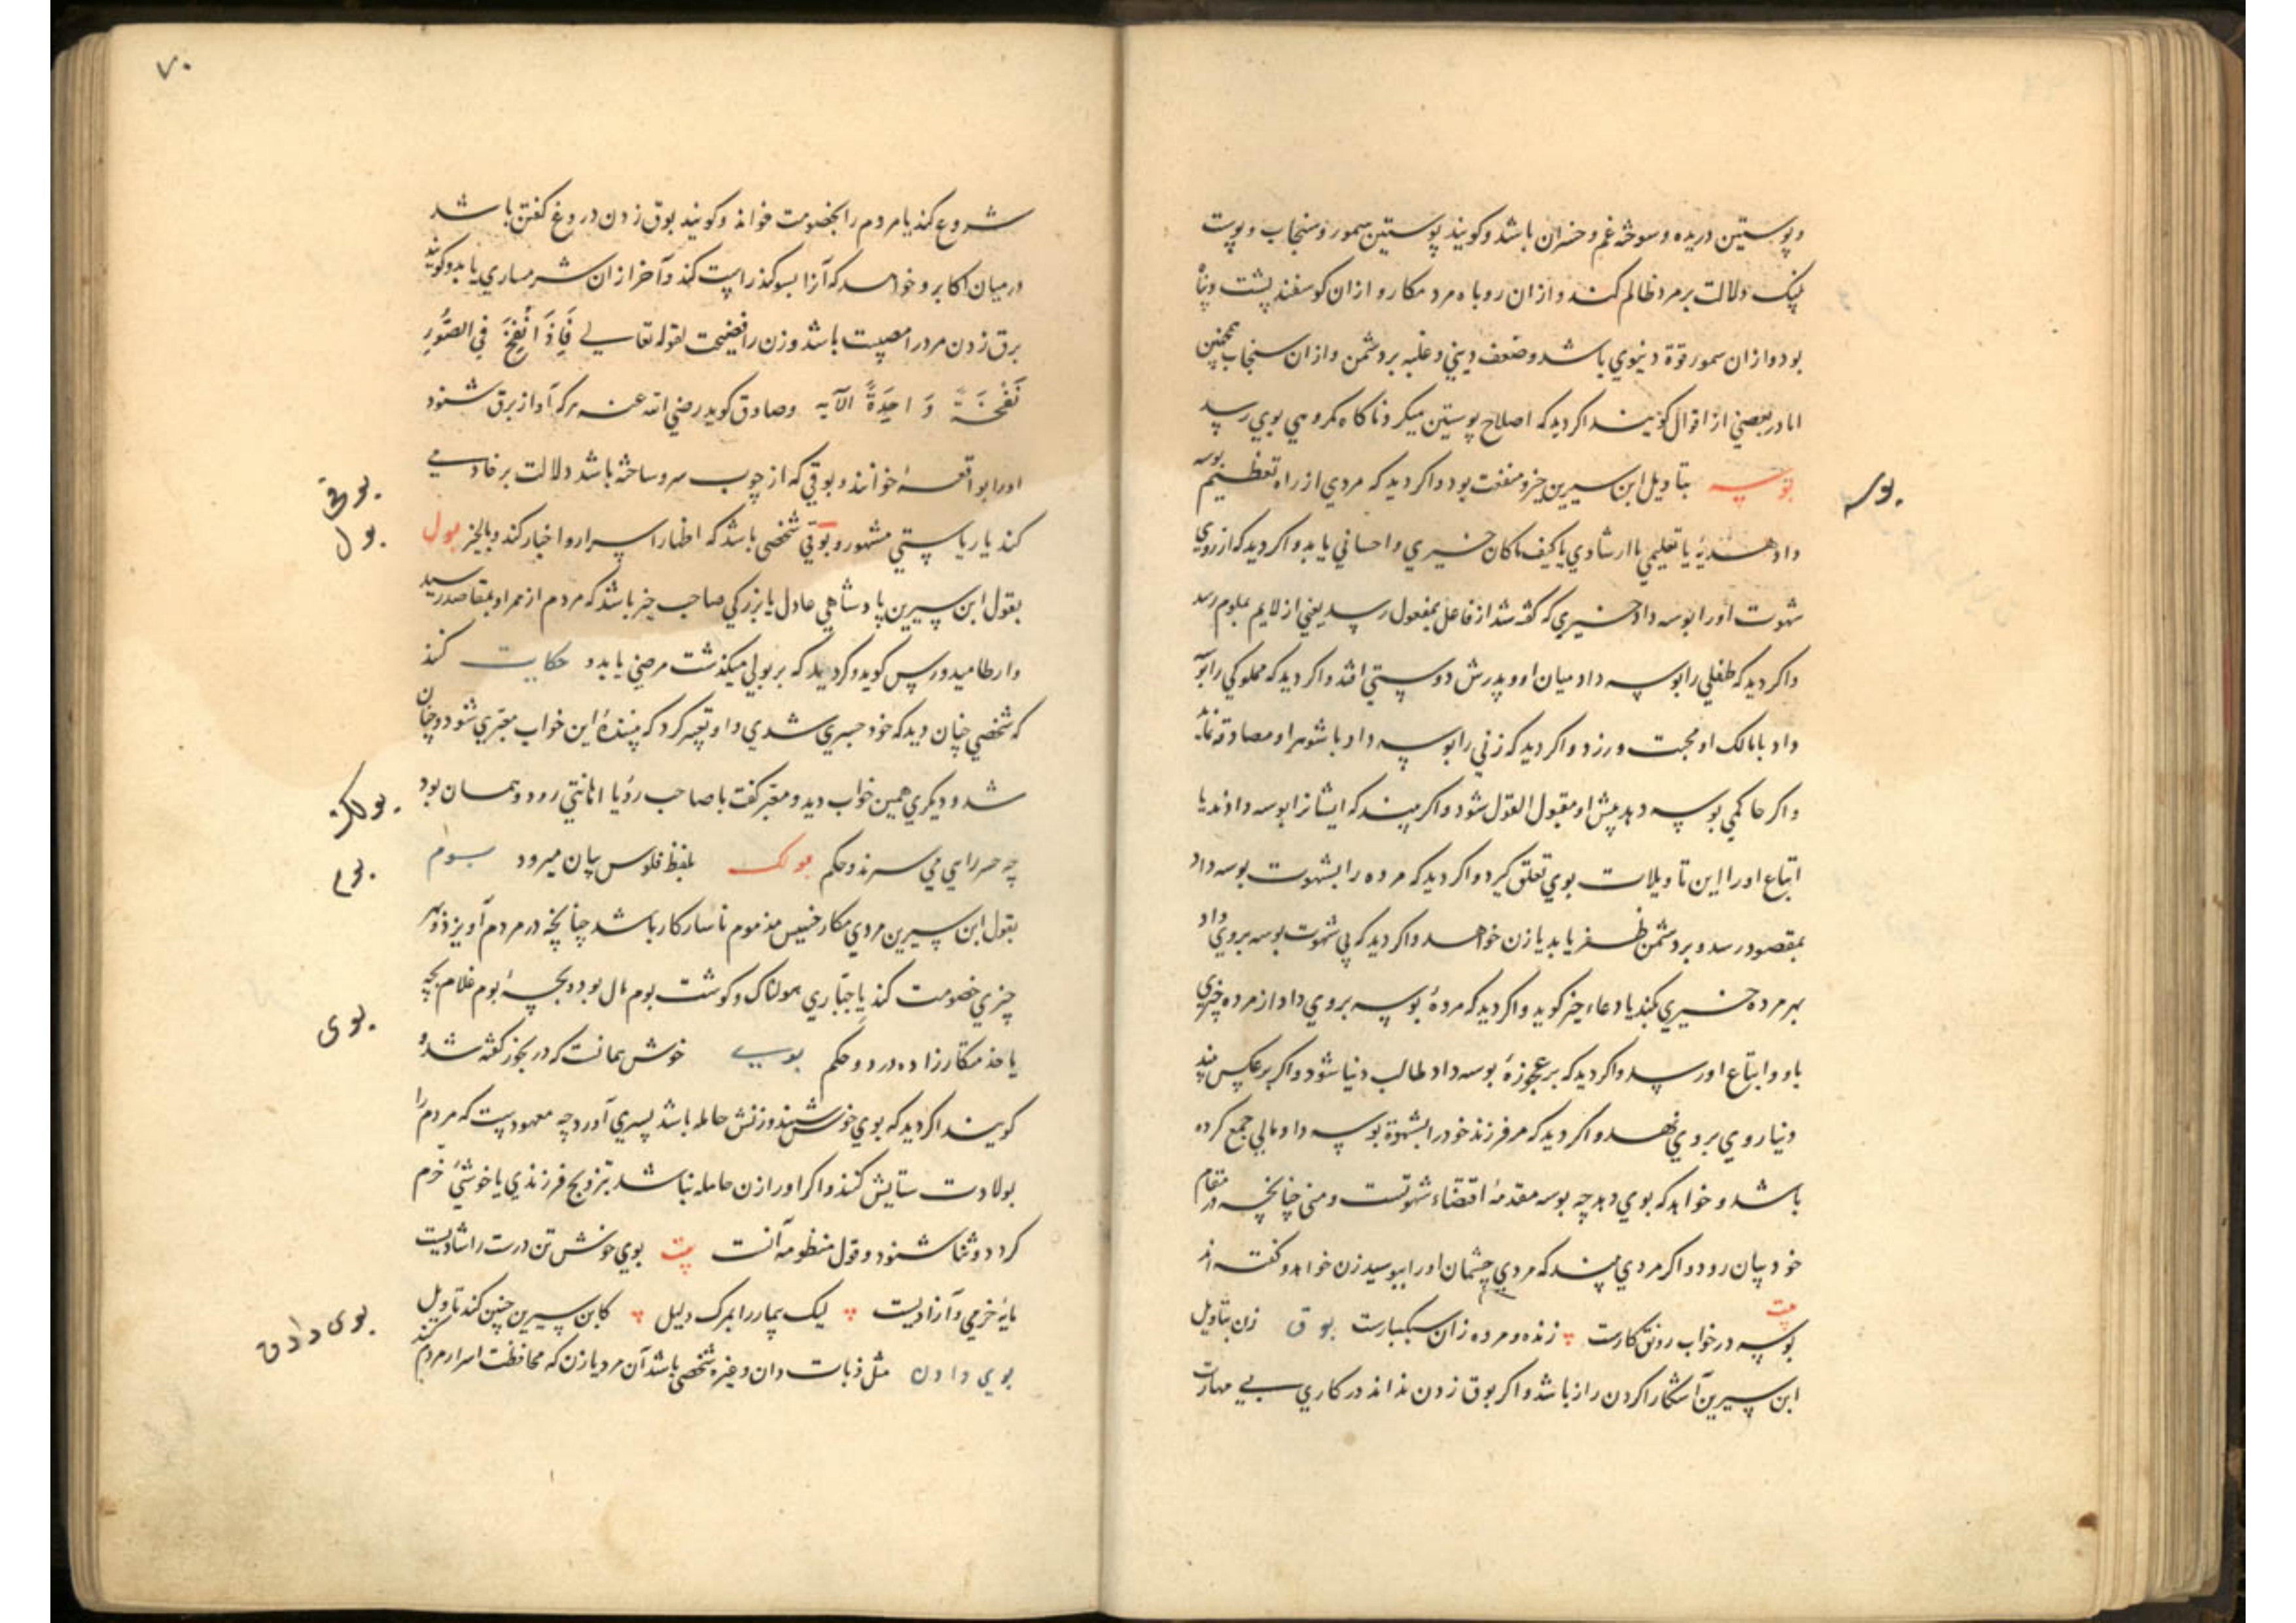 و پوستین دریده و سوخته غم و خسران باشد و کویند پوستین سمور و سنجاب و پوست
پلنک دلالت بر مرد ظالم کند و از ان روباه مرد مکار و از ان کوسفند پشت و پناه
بود و از ان سمور قوة دنیوي باشد و ضعف دیني و غلبه بر دشمن و از ان سنجاب همچنین
اما در بعضي از اقوال کویند اکر دید که اصلاح پوستین میکرد ناکاه مکروهي بوي رسد
بوسه بتاویل ابن سیرین خیر و منفعت بود و اکر دید که مردي از راه تعظیم بوسه
بوسه
داد هدیۀ یا تعلیمي یا ارشادي یا کیف ماکان خیري و احساني یابد و اکر دید که از روي
شهوت او را بوسه داد خیري که کفته شد از فاعل بمفعول رسد یعني از لایم بملوم رسد
و اکر دید که طفلي را بوسه داد میان او و پدرش دوستي افتد و اکر دید که مملوکي را بوسه
داد با مالک او محبت ورزد و اکر دید که زني را بوسه داد با شوهر او مصادقه نماید
و اکر حاکمي بوسه دهد پیش او مقبول القول شود و اکر بیند که ایشانرا بوسه دادند یا
اتباع او را این تاویلات بوي تعلق کیرد و اکر دید که مرده را بشهوت بوسه داد
بمقصود رسد و بر دشمن ظفر یابد یا زن خواهد و اکر دید که بي شهوت بوسه بروي داد
بهر مرده خیري بکند یا دعاء خیر کوید و اکر دید که مردۀ بوسه بروي داد از مرده خیري
باو و اتباع او رسد و اکر دید که بر عجوزۀ بوسه داد طالب دنیا شود و اکر بر عکس بیند
دنیا روي بروي نهد و اکر دید که مر فرزند خود را بشهوة بوسه داد مالي جمع کرده
باشد و خواهد که بوي دهد چه بوسه مقدمۀ اقتضاء شهوتست و مني چنانچه در مقام
خود بیان رود و اکر مردي بیند که مردي چشمان او را ببوسید زن خواهد و کفته اند
بیت
بوسه در خواب رونق کارست زنده و مرده زان سبکبارست بوق زدن بتاویل
ابن سیرین آشکارا کردن راز باشد و اکر بوق زدن نداند در کاري بي مهارت
۷۰
شروع کند یا مردم را بخصومت خواند و کویند بوق زدن دروغ کفتن باشد
در میان اکابر و خواهد که آنرا بسوکند راست کند و آخر از ان شرمساري یابد و کویند
برق زدن مرد را مصیبت باشد و زن را فضیحت لقوله تعالي فَاِذَا نُفِخَ فِي الصُّورِ
نَفْخَةٌ وَاحِدَةٌ الآیه و صادق کوید رضي الله عنه هرکه آواز برق شنود
او را بواقعۀ خوانند و بوقي که از چوب سرو ساخته باشد دلالت بر خادمي
بوقی
کند یا ریاستي مشهور و بوقي شخصي باشد که اظهار اسرار و اخبار کند و بالخیر بول
بول
بقول ابن سیرین پادشاهي عادل یا بزرکي صاحب خیر باشد که مردم از ممر او بمقاصد رسید
و ارطامیدورس کوید و کر دید که بر بولي میکذشت مرضي یابد و حکایت کنند
که شخصي چنان دید که خود جسري شدي و او تعبیر کرد که بینندۀ این خواب معبري شود و چنان
شد و دیکري همین خواب دید و معبر کفت با صاحب رؤیا اهانتي رود و همسان بود
بولک
چه هر رایي مي سرند و حکم بولک بلفظ فلوس بیان میرود بوم
بوم
بقول ابن سیرین مردي مکار خسیس مذموم ناسازکار باشد چنانچه در مردم آویزد و بهر
چیزي خصومت کند یا جبّاري هولناک و کوشت بوم مال بود و بچۀ بوم غلام بچه
یا خدمتکار زاده دزد و حکم بوي خوش همانست که در بخور کفته شد و
بوی
کویند اکر دید که بوي خوش شنید و زنش حامله باشد پسري آورد چه معهودست که مردم را
بولادت ستایش کنند و اکر او را زن حامله نباشد بتزویج فرزندي یا خوشيء خرم
کردد و ثنا شنود و قول منظومه آنست بیت بوي خوش تن درست را شادیست
مایۀ خرمي و آزادیست لیک بیمار را بمرک دلیل کابن سیرین چنین کند تاویل
بوي دادن مثل ذبات دان و غیره شخصي باشد آن مرد یا زن که محافظت اسرار مردم کند
بوی دادن